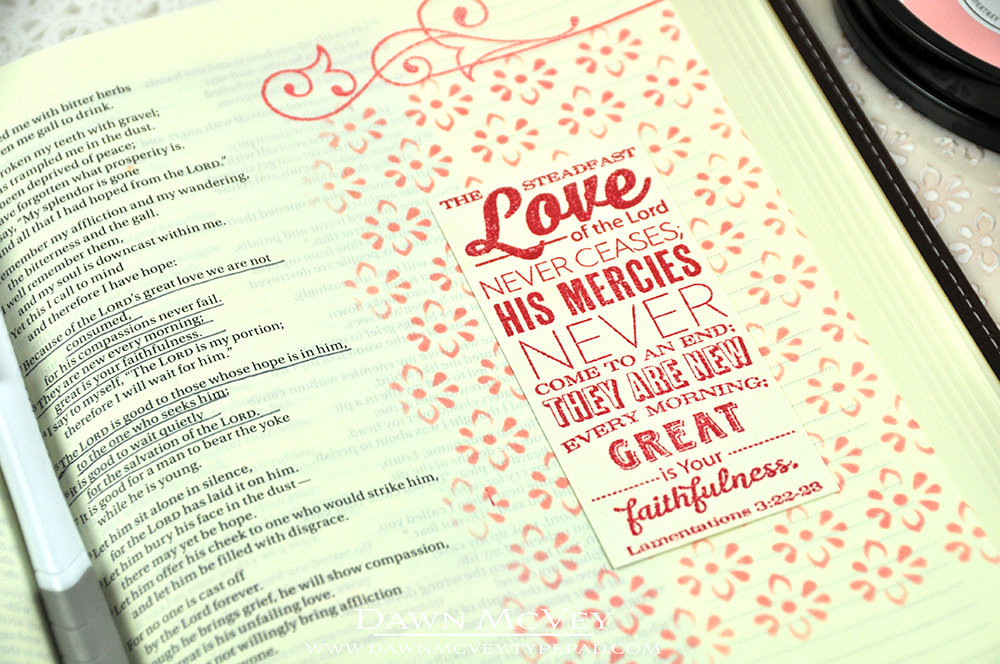 ed me with bitter herbs
me gall to drink.
roken my teeth with gravel;
as trampled me in the dust.
been deprived of peace;
ave forgotten what prosperity is.
say, "My splendor is gone
and all that I had hoped from the LORD."
remember my affliction and my wandering,
the bitterness and the gall.
I well remember them,
and my soul is downcast within me.
Yet this I call to mind
and therefore I have hope:
Because of the LORD's great love we are not
consumed,
for his compassions never fail.
They are new every morning;
great is your faithfulness.
I say to myself, "The LORD is my portion;
therefore I will wait for him."
The LORD is good to those whose hope is in him,
to the one who seeks him;
it is good to wait quietly
for the salvation of the LORD.
It is good for a man to bear the yoke
while he is young.
Let him sit alone in silence,
for the LORD has laid it on him.
Let him bury his face in the dust—
there may yet be hope.
Let him offer his cheek to one who would strike him,
and let him be filled with disgrace.
For no one is cast off
by the Lord forever.
ough he brings grief, he will show compassion,
reat is his unfailing love.
is not willingly bring affliction
THE STEADFAST
Love
of the Lord
NEVER CEASES;
HIS MERCIES
NEVER
COME TO AN END;
THEY ARE NEW
EVERY MORNING;
GREAT
is Your
faithfulness.
Lamentations 3:22-23
DAWN MCVEY
WWW.DAWNMCVEY.TYPEPAD.COM